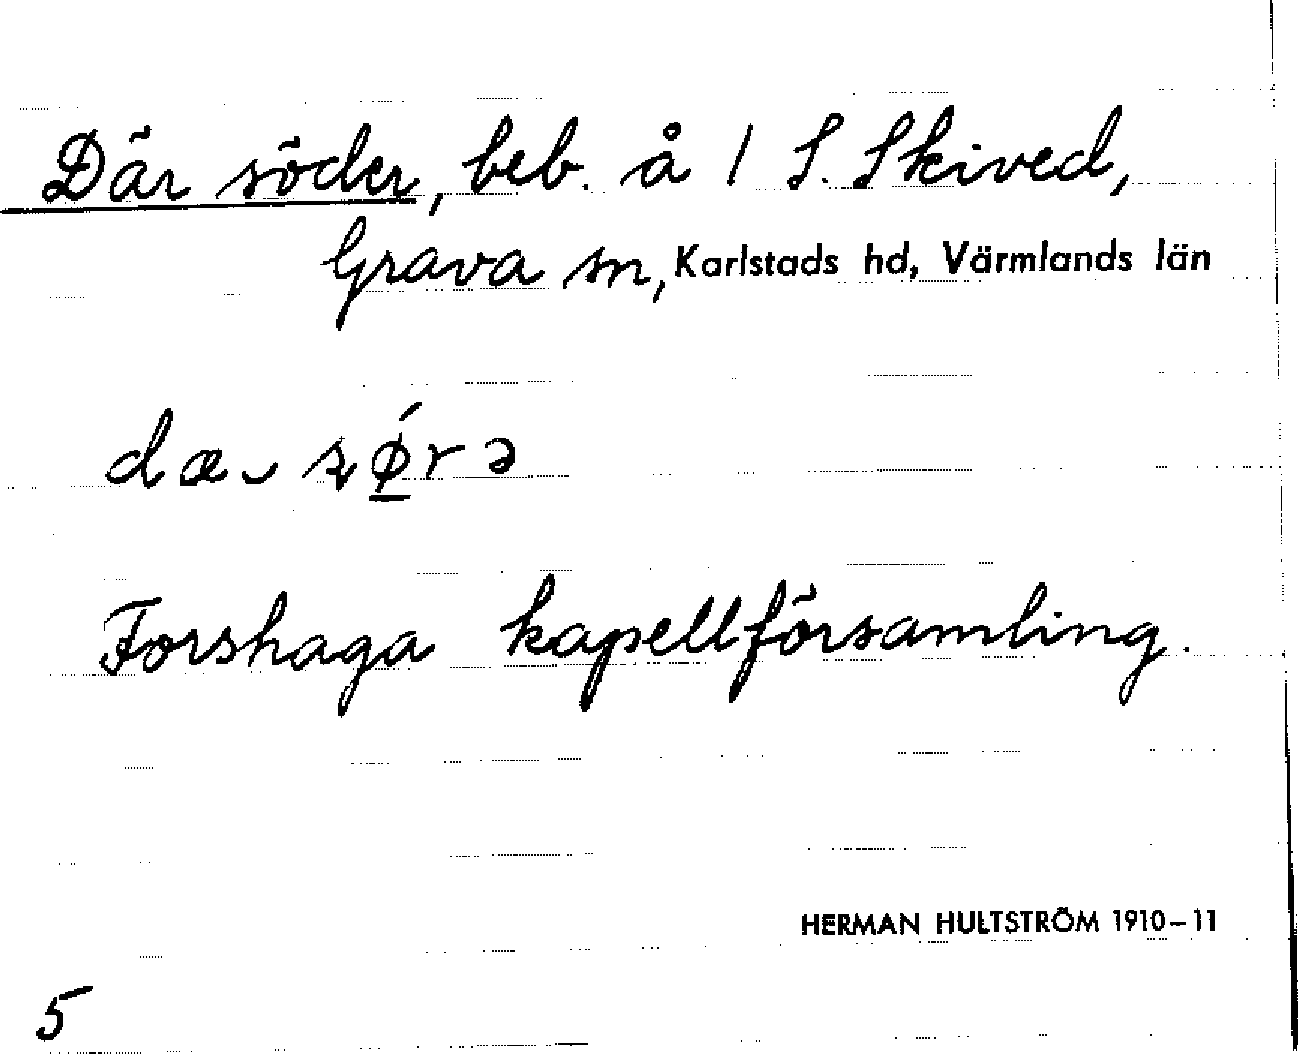 Där söder, beb. å 1 S. Skived,
Grava sn, Karlstads hd, Värmlands län
dæ⌣ sǿ̲rə
Forshaga kapellförsamling.
HERMAN HULTSTRÖM 1910–11
5